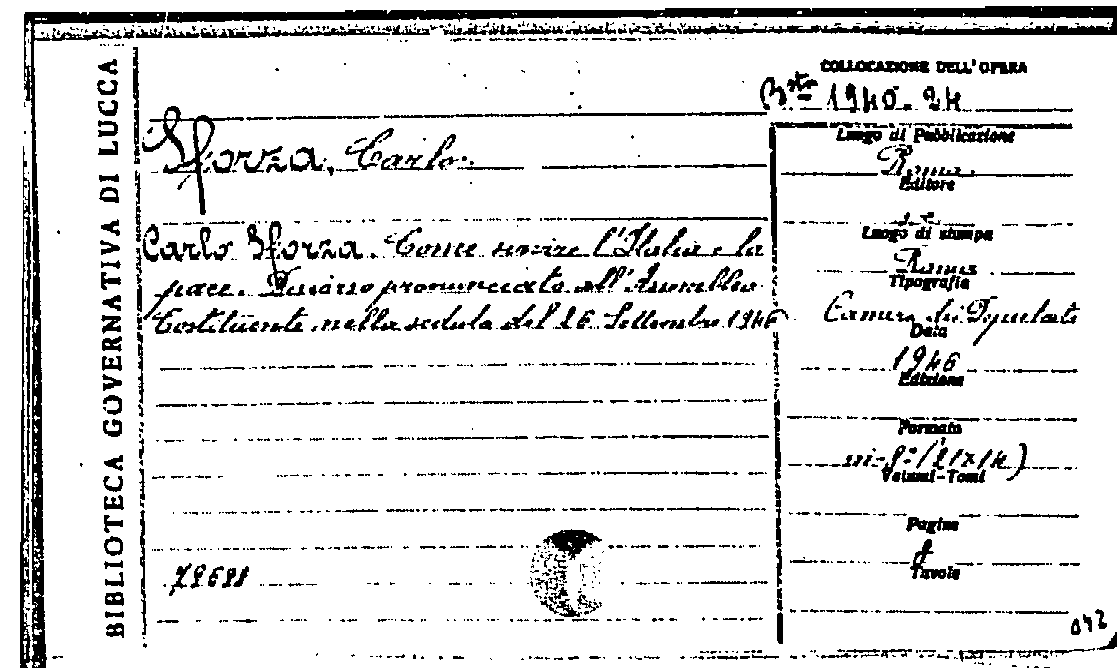 BIBLIOTECA GOVERNATIVA DI LUCCA
COLLOCAZIONE DELL'OPERA
Bsta 1940.24
Sforza, Carlo.
Luogo di Pubblicazione
Roma.
Editore
Carlo Sforza. Come servire l'Italia e la
pace. Discorso pronunciato all'Assemblea
Costituente nella seduta del 26 Settembre 1946
Luogo di stampa
Roma
Tipografia
Camera dei Deputati
Data
1946
Edizione
Formato
Volumi-Tomi
Pagine
8
Tavole
042